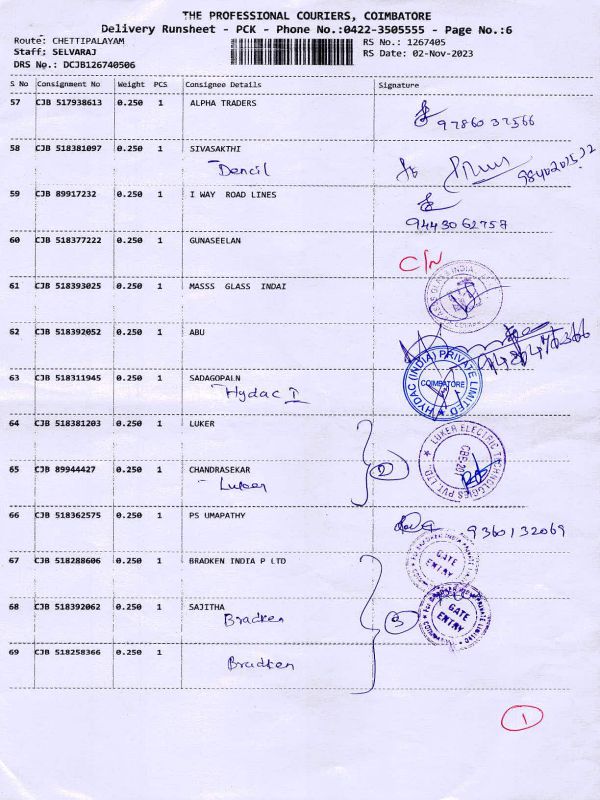 THE PROFESSIONAL COURIERS, COIMBATORE
Delivery Runsheet - PCK - Phone No.:0422-3505555 - Page No.:6
Route: CHETTIPALAYAM
RS No.: 1267405
Staff: SELVARAJ
RS Date: 02-Nov-2023
DRS No.: DCJB126740506
S No Consignment No Weight PCS Consignee Details Signature
57 CJB 517938613 0.250 1 ALPHA TRADERS
9786037566
58 CJB 518381097 0.250 1 SIVASAKTHI
Dencil
59 CJB 89917232 0.250 1 I WAY ROAD LINES
9443062757
60 CJB 518377222 0.250 1 GUNASEELAN
C/N
61 CJB 518393025 0.250 1 MASSS GLASS INDAI
62 CJB 518392052 0.250 1 ABU
63 CJB 518311945 0.250 1 SADAGOPALN
Hydac I
HYDAC (INDIA) PRIVATE LIMITED
COIMBATORE
64 CJB 518381203 0.250 1 LUKER
LUKER ELECTRIC TECHNOLOGIES PVT LTD.,
65 CJB 89944427 0.250 1 CHANDRASEKAR
Luker
2
66 CJB 518362575 0.250 1 PS UMAPATHY
9360132069
67 CJB 518288606 0.250 1 BRADKEN INDIA P LTD
GATE ENTRY
68 CJB 518392062 0.250 1 SAJITHA
Bradken
3
GATE ENTRY
69 CJB 518258366 0.250 1
Bradken
1